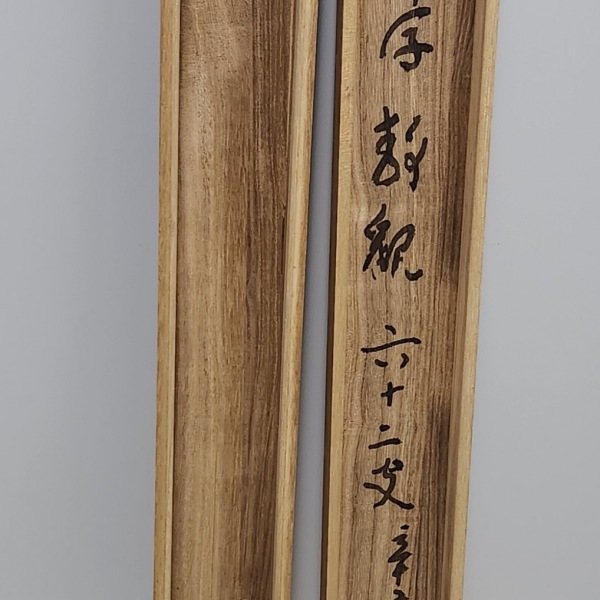 字静観六十二叟